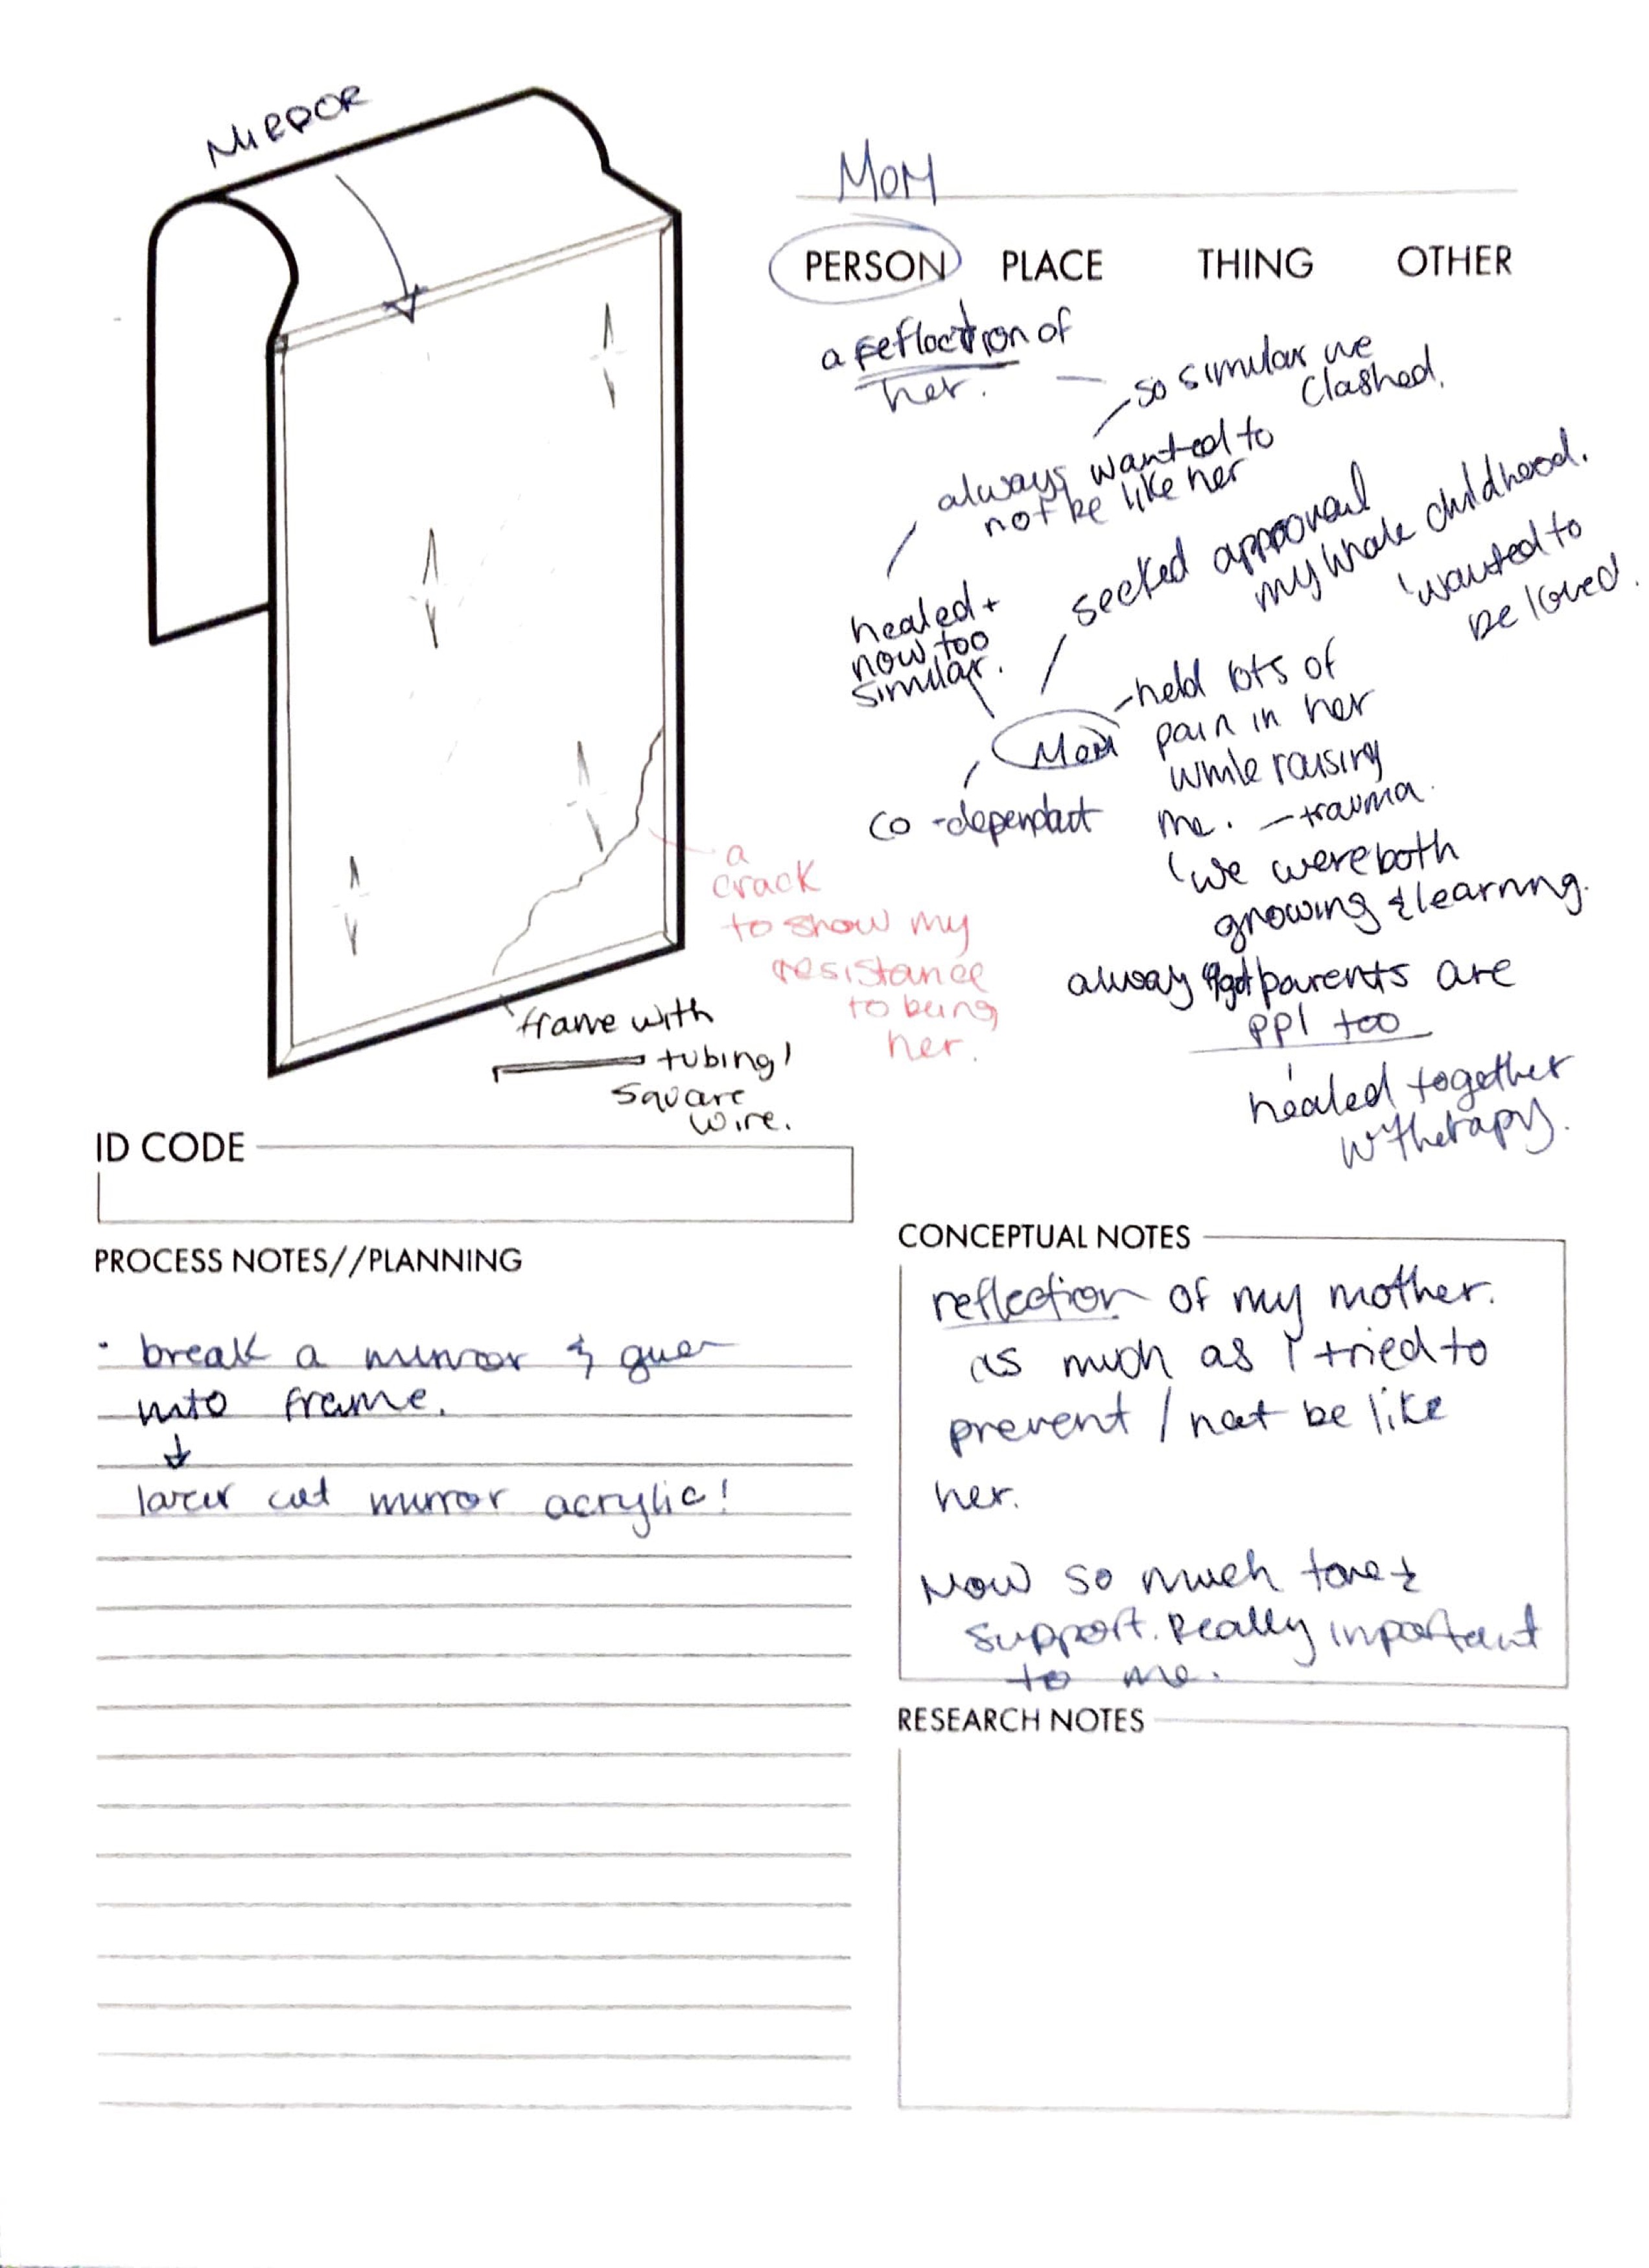 MIRROR
MOM
PERSON PLACE THING OTHER
a reflection of
her.
so similar we
clashed.
always wanted to
not be like her
healed +
now too
similar.
seeked approval
my whole childhood.
wanted to
be loved.
Mom
co-dependant
held lots of
pain in her
while raising
me. - trauma.
we were both
growing & learning.
parents are
ppl too
healed together
w therapy.
a
crack
to show my
resistance
to being
her.
frame with
tubing/
square
wire.
ID CODE
PROCESS NOTES//PLANNING
• break a mirror &
into frame.
cut mirror acrylic!
CONCEPTUAL NOTES
reflection of my mother.
as much as I tried to
prevent / not be like
her.
Now so much
support. Really important
to me.
RESEARCH NOTES